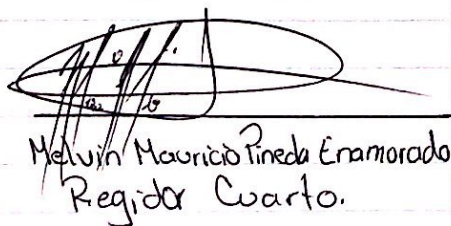 Melvin Mauricio Pineda Enamorado
Regidor Cuarto.